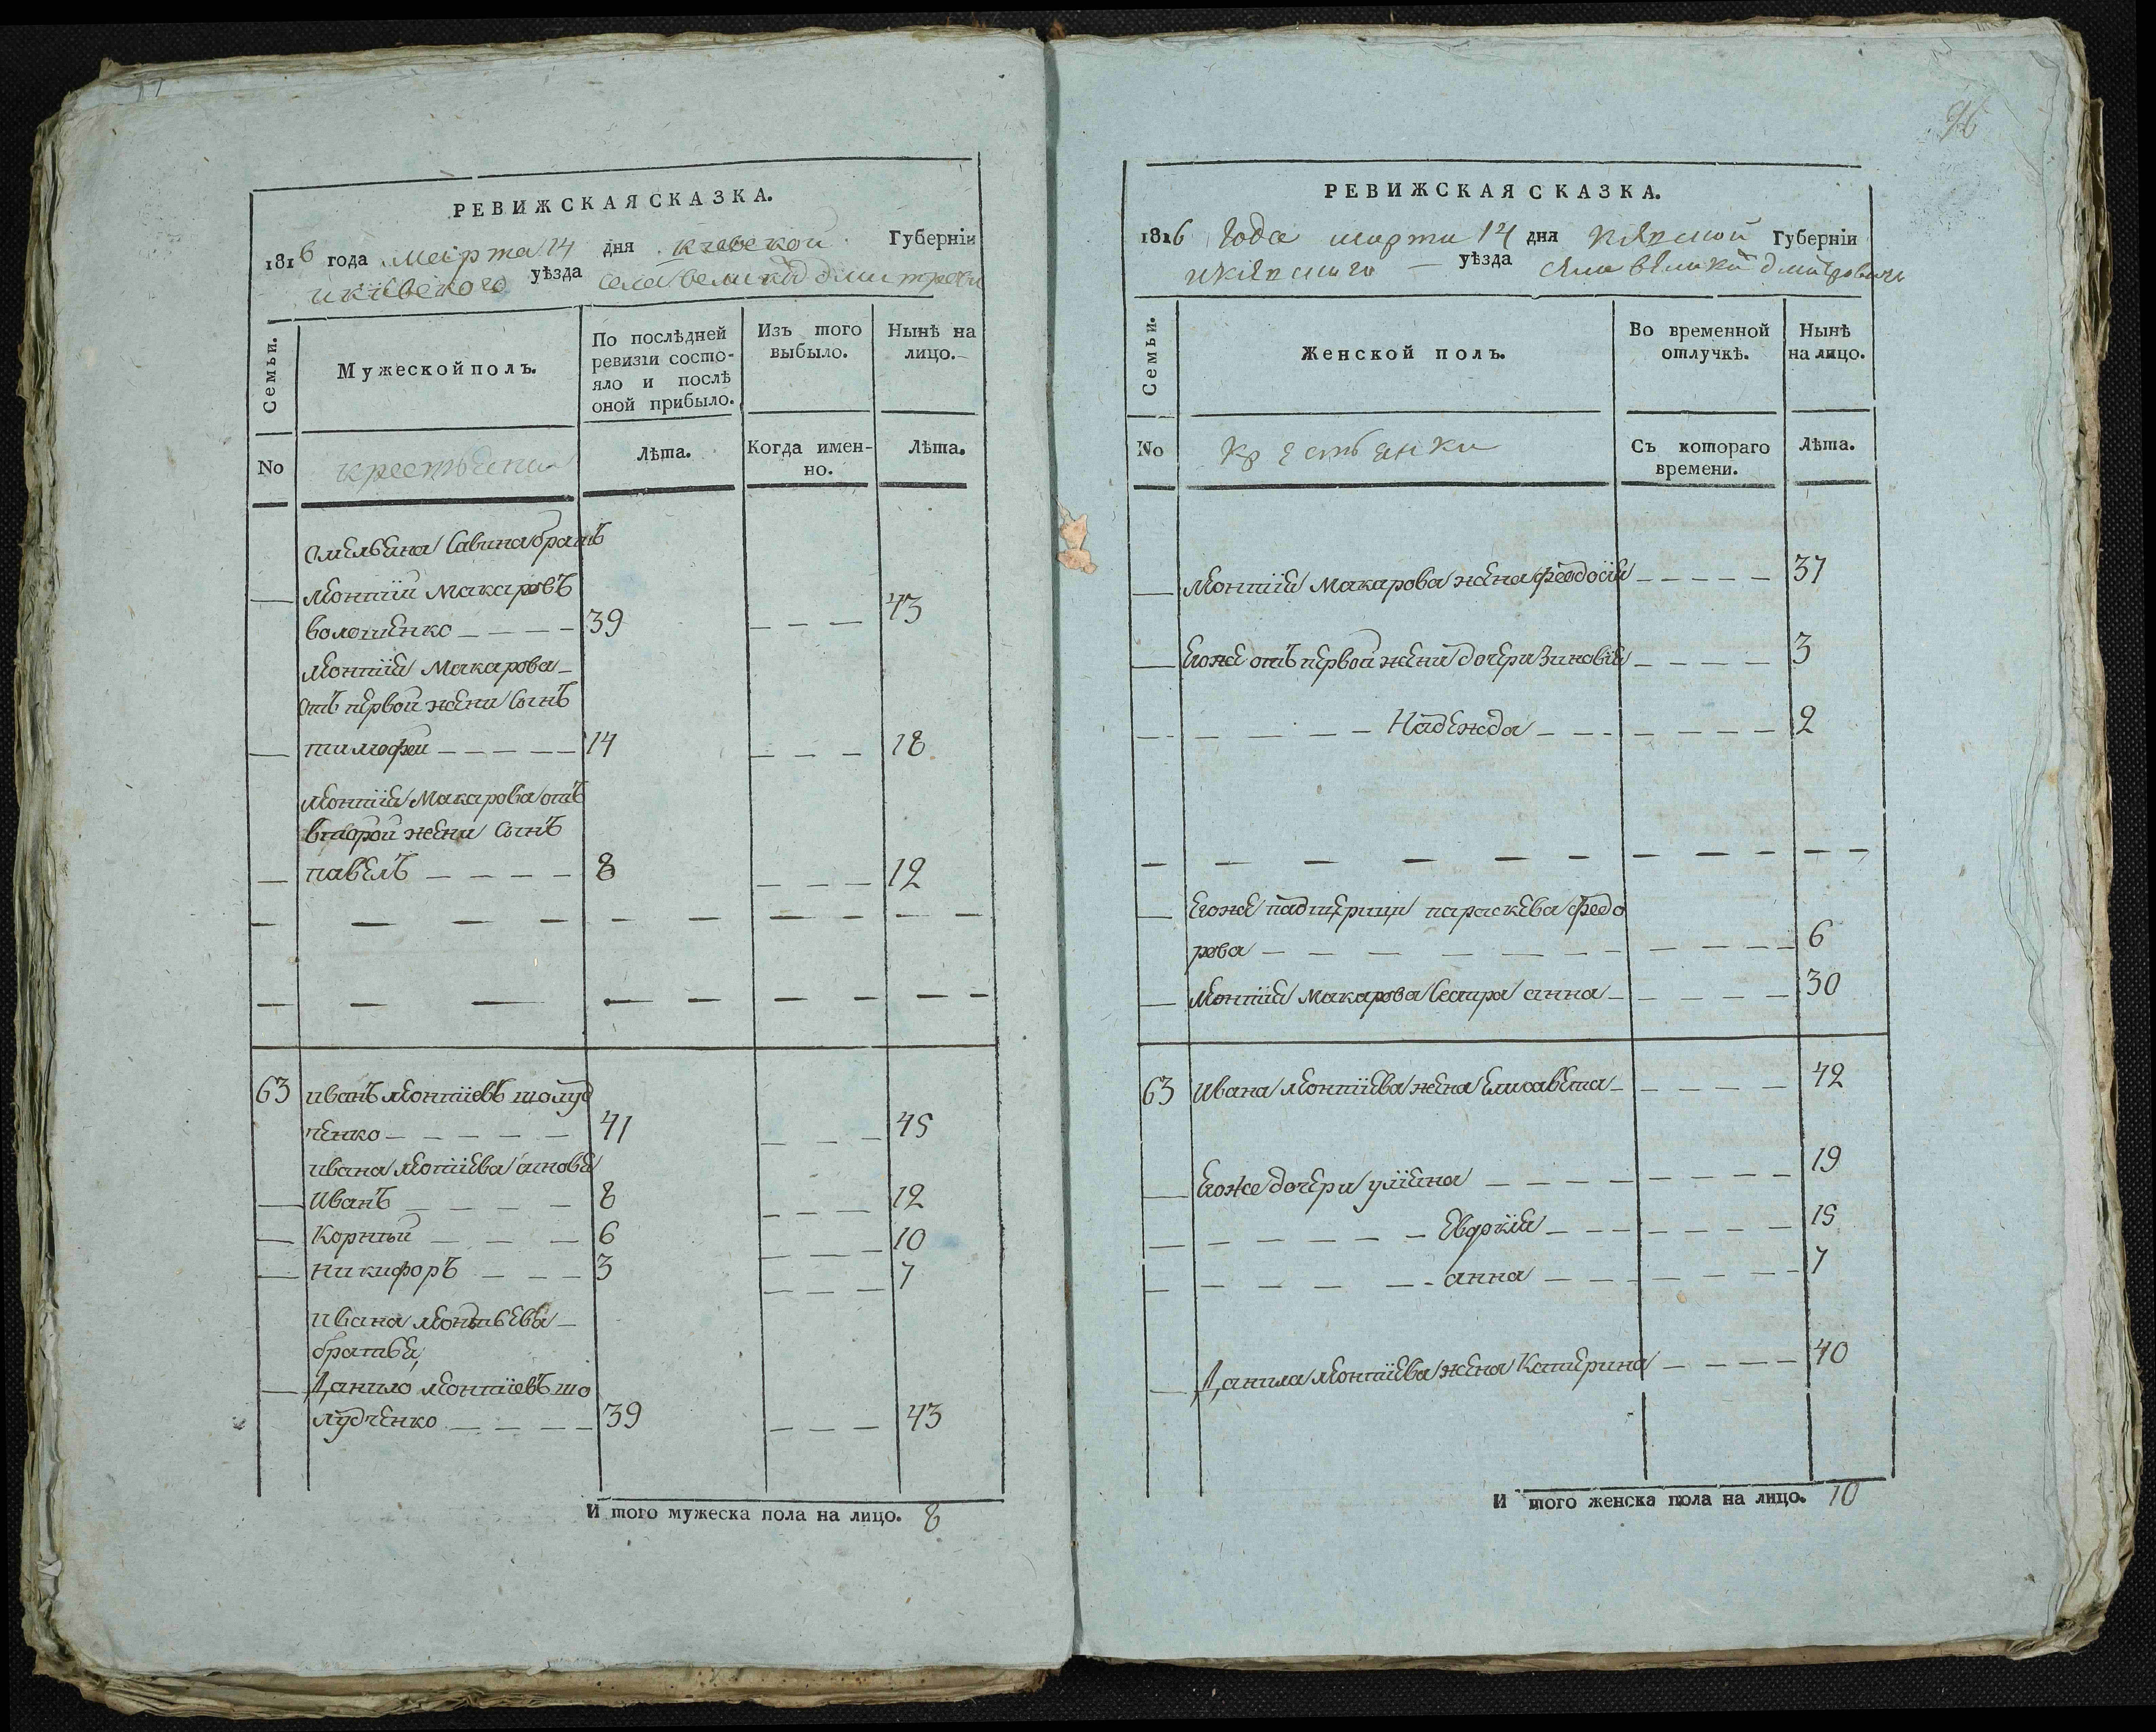 96
РЕВИЖСКАЯ СКАЗКА.
1816 года Марта 14 дня киевской Губерніи
и киевского уѣзда села великой дмитрови
Семьи.
Мужеской полъ.
По послѣдней ревизіи состо-
яло и послѣ
оной прибыло.
Изъ того
выбыло.
Нынѣ на
лицо.
No
крестьяне
Лѣта.
Когда имен-
но.
Лѣта.
Омельяна Савина братъ
Монтій Макаровъ
волошенко 39 43
Монтія Макарова
отъ первой жени Сынъ
тимофей 14 18
Монтія Макарова отъ
второй жени Сынъ
павелъ 8 12
63 иванъ Монтіевъ шолуд
ченко 41 45
ивана Мотіева синовя
Иванъ 8 12
Корний 6 10
Никифоръ 3 7
ивана Монтьева
братья
Данило Монтіевъ шо
лудченко 39 43
И того мужеска пола на лицо. 8
РЕВИЖСКАЯ СКАЗКА.
1816 Года марта 14 дня Губерніи
уѣзда великой дмитровичи
Семьи.
Женской полъ.
Во временной
отлучкѣ.
Нынѣ
на лицо.
No
Крестьянки
Съ котораго
времени.
Лѣта.
Монтія Макарова жена феодосія 37
Егоже отъ первой жени дочери Зиновія 3
Надежда 2
Егоже падщерица параскева Федо
рова 6
Монтія Макарова Сестра анна 30
63 Ивана Монтіева жена Елисавета 42
Егоже дочери уліяна 19
Евдокія 15
анна 7
Данила Монтіева жена Катерина 40
И того женска пола на лицо. 10